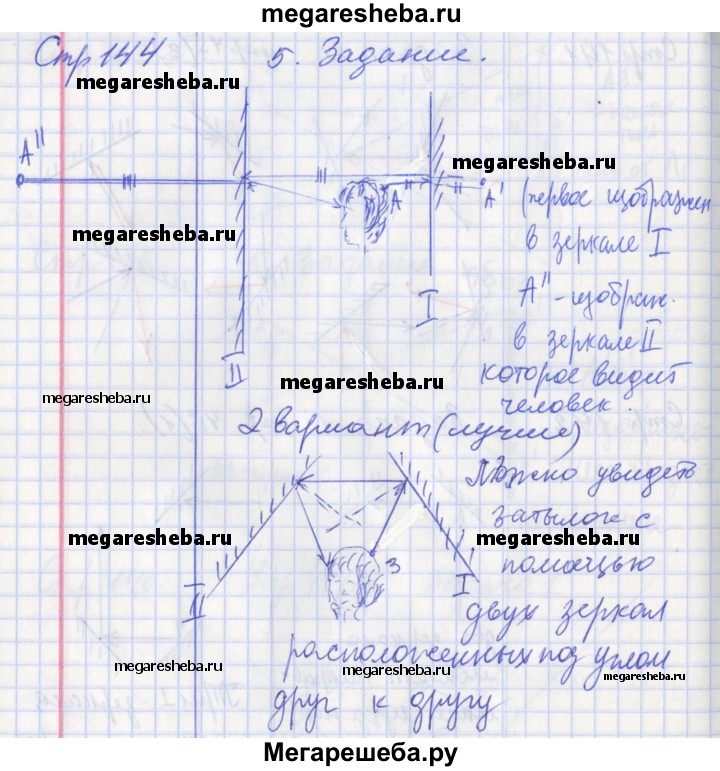 megaresheba.ru
Стр 144 5. Задание.
megaresheba.ru
A"
megaresheba.ru
A A' (первое изображен
megaresheba.ru
в зеркале I
I A" - изображ.
в зеркале II
II которое видит
megaresheba.ru
человек.
megaresheba.ru
2 вариант (лучше)
Можно увидеть
затылок с
megaresheba.ru
megaresheba.ru
помощью
З
II I
двух зеркал
расположенных под углом
megaresheba.ru
megaresheba.ru
megaresheba.ru
друг к другу
Мегарешеба.ру